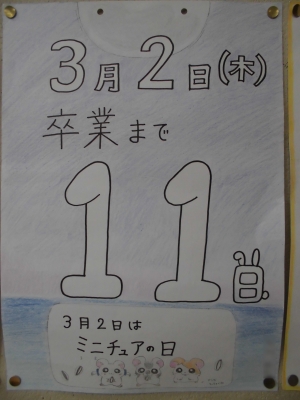 3月2日(木)
卒業まで
11日
3月2日は
ミニチュアの日